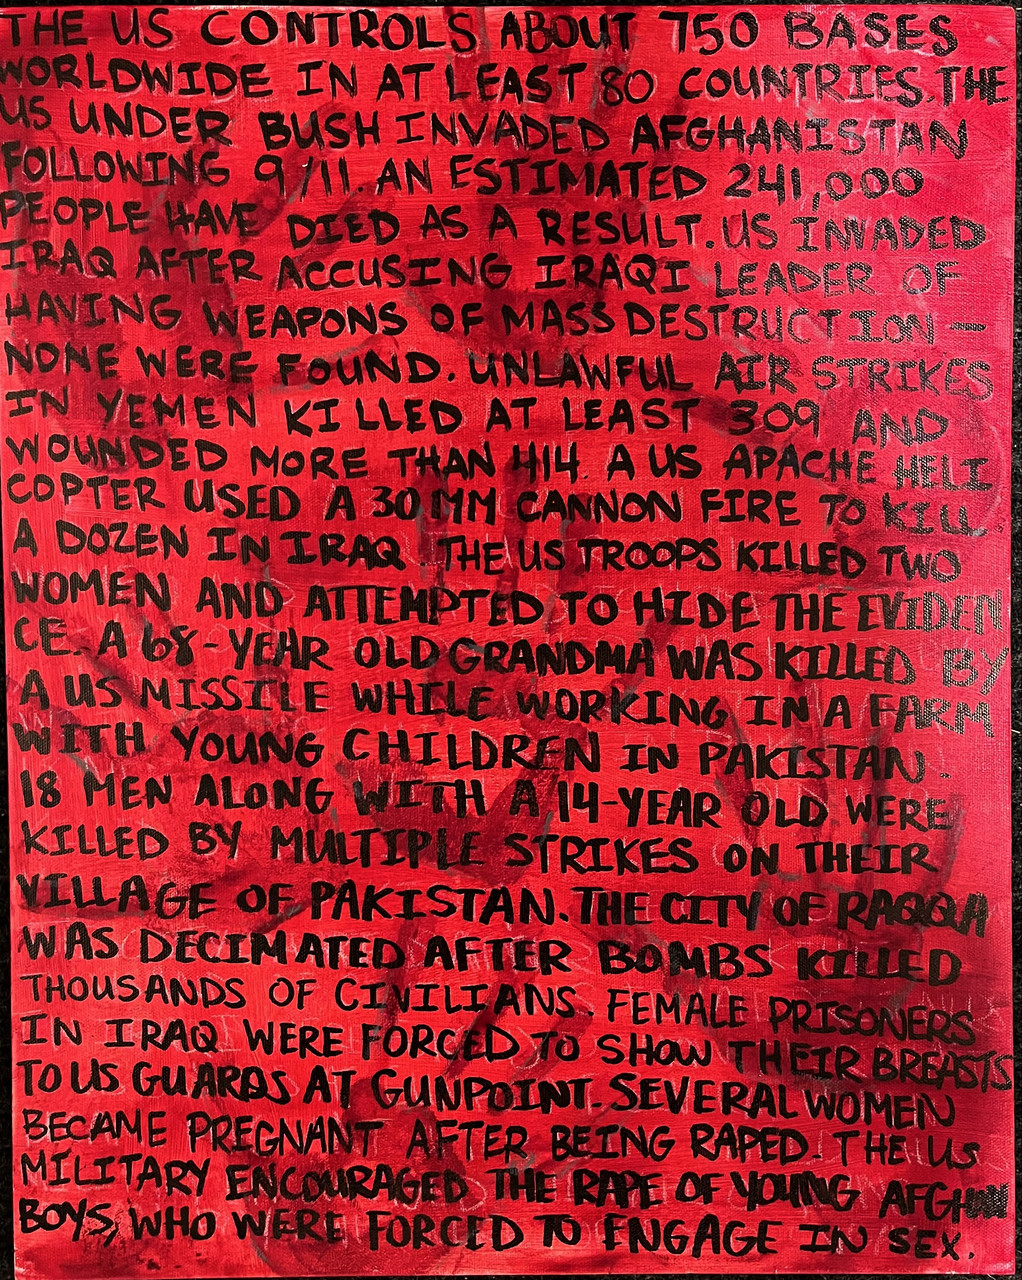 THE US CONTROLS ABOUT 750 BASES
WORLDWIDE IN AT LEAST 80 COUNTRIES. THE
US UNDER BUSH INVADED AFGHANISTAN
FOLLOWING 9/11. AN ESTIMATED 241,000
PEOPLE HAVE DIED AS A RESULT. US INVADED
IRAQ AFTER ACCUSING IRAQI LEADER OF
HAVING WEAPONS OF MASS DESTRUCTION -
NONE WERE FOUND. UNLAWFUL AIR STRIKES
IN YEMEN KILLED AT LEAST 309 AND
WOUNDED MORE THAN 414. A US APACHE HELI
COPTER USED A 30 MM CANNON FIRE TO KILL
A DOZEN IN IRAQ. THE US TROOPS KILLED TWO
WOMEN AND ATTEMPTED TO HIDE THE EVIDEN
CE. A 68-YEAR OLD GRANDMA WAS KILLED BY
A US MISSILE WHILE WORKING IN A FARM
WITH YOUNG CHILDREN IN PAKISTAN.
18 MEN ALONG WITH A 14-YEAR OLD WERE
KILLED BY MULTIPLE STRIKES ON THEIR
VILLAGE OF PAKISTAN. THE CITY OF RAQQA
WAS DECIMATED AFTER BOMBS KILLED
THOUSANDS OF CIVILIANS. FEMALE PRISONERS
IN IRAQ WERE FORCED TO SHOW THEIR BREASTS
TO US GUARDS AT GUNPOINT. SEVERAL WOMEN
BECAME PREGNANT AFTER BEING RAPED. THE US
MILITARY ENCOURAGED THE RAPE OF YOUNG AFGHAN
BOYS, WHO WERE FORCED TO ENGAGE IN SEX.